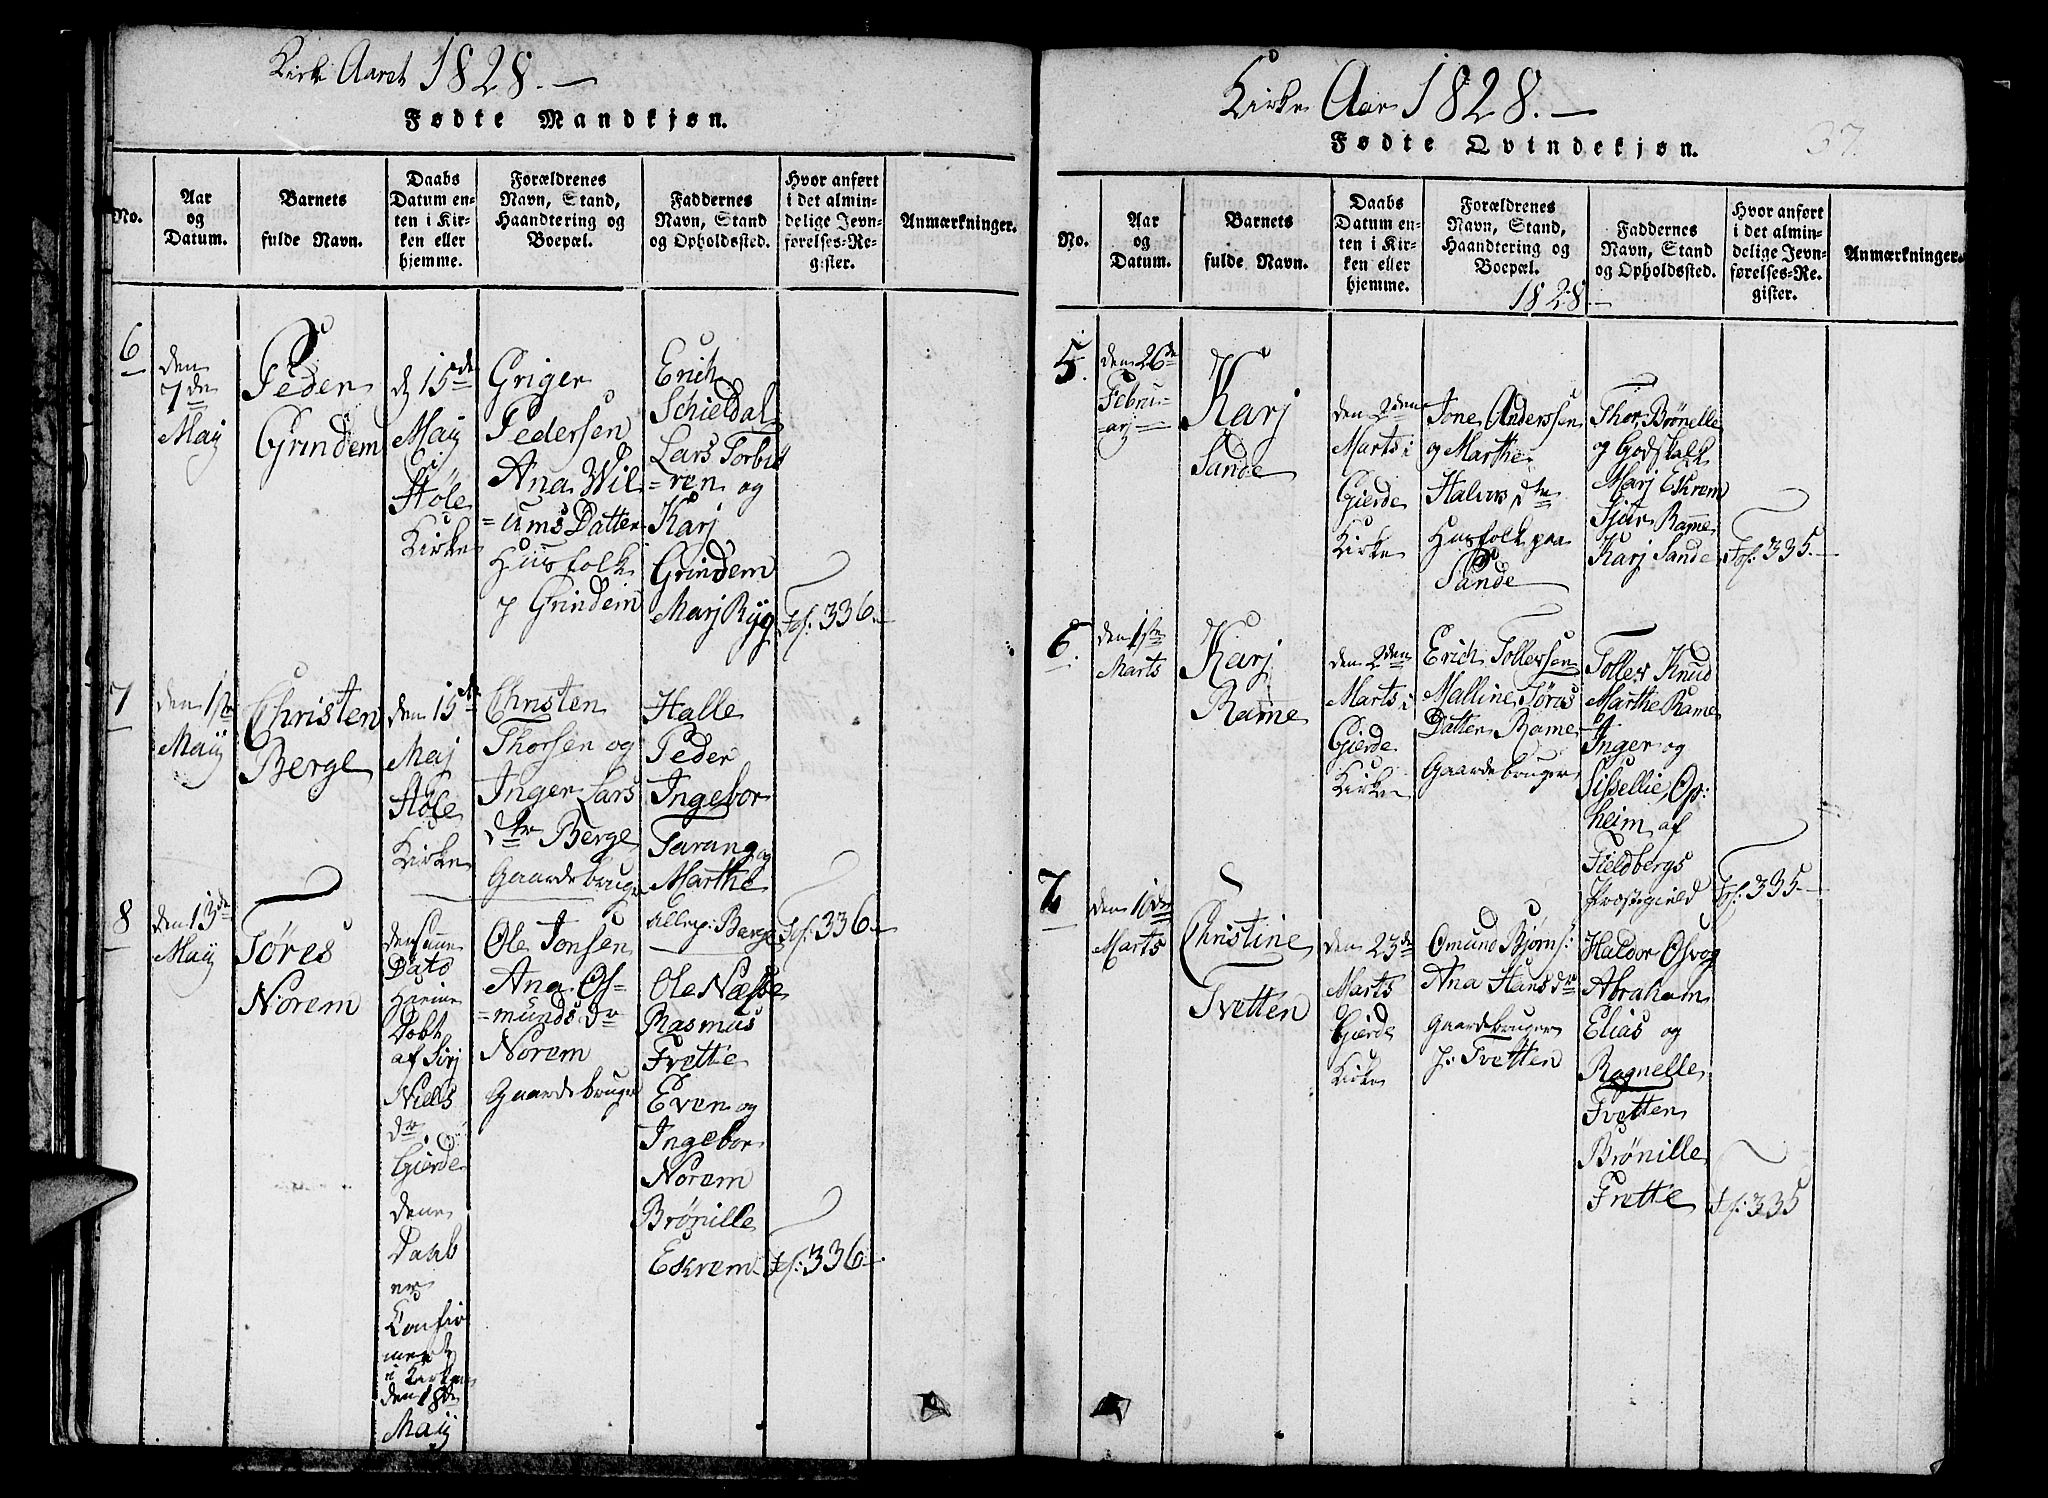 Kirke Aaret 1828.
Fødte Mandkjøn.
No.
Aar
og
Datum.
Barnets
fulde Navn.
Daabs
Datum en-
ten i Kir-
ken eller
hjemme.
Forældrenes
Navn, Stand,
Haandtering og
Boepæl.
Faddernes
Navn, Stand
og Opholdssted.
Hvor anført
i det almin-
delige Jevn-
førelses-Re-
gister.
Anmærkninger.
6
den
7de
Maij
Peder
Grindem
d 15de
Maij
i
Höle
Kirke
Griger
Pedersen
Ana Wil
=ums Datter
Husfolk
p Grindem
Erich
Schieldal
Lars Torbiö
=ren og
Karj
Grindem
Marj Ryg
Jf: 336.
7
den 1ste
Maij
Christen
Berge
den 15de
Maj
Höle
Kirke
Christen
Thorsen og
Inger Lars
dtr Berge
Gaardebruger
Halle
Peder
Ingebor
Tarang og
Marthe
alle p: Berge
Jf: 336.
8
den 13de
Maij
Töres
Norem
den Samme
Dato
Hieme
Döbt
af Siri
Niels
dr
Gierde
denne
Daab
er
Confir
meret
i Kirken
den 18de
Maij
Ole Jonsen
Ana Os=
=munds dr
Norem
Gaardebruger
Ole Næsse
Rasmus
Frette
Even og
Ingebor
Norem
Brönille
Eskrem
Jf: 336.
Kirke Aar 1828.
Fødte Qvindekjøn.
37.
No.
Aar
og
Datum.
Barnets
fulde Navn.
Daabs
Datum en-
ten i Kir-
ken eller
hjemme.
Forældrenes
Navn, Stand,
Haandtering og
Boepæl.
1828.
Faddernes
Navn, Stand
og Opholdssted.
Hvor anført
i det almin-
delige Jevn-
førelses-Re-
gister.
Anmærkninger.
5.
den 26de
Febru-
arj
Karj
Sande
den 2den
Marts i
Gierde
Kirke
Jone Anderssen
og Marthe
Halvors dtr
Husfolk paa
Sande
Thor, Brönelle
og Godskalk
Marj Eskrem
Siur Rame
Karj Sande
Jof: 335.
6.
den 1ste
Marts
Karj
Rame
den 2den
Marts i
Gierde
Kirke
Erich Tollevsen
Malline Töres
Datter Rame
Gaardebruger
Tollev Knud
Marthe Rame
Inger og
Sissellie Op:
heim af
Fieldbergs
Præstegield
Jof: 335.
7.
den 10de
Marts
Christine
Tvetten
den 23de
Marts
Gierde
Kirke
Omund Bjørns:
Ana Hans dr
Gaardebruger
p: Tvetten
Haldor Osvog
Abraham
Elias og
Ragnelle
Tvetten
Brönille
Frette
Jf: 335